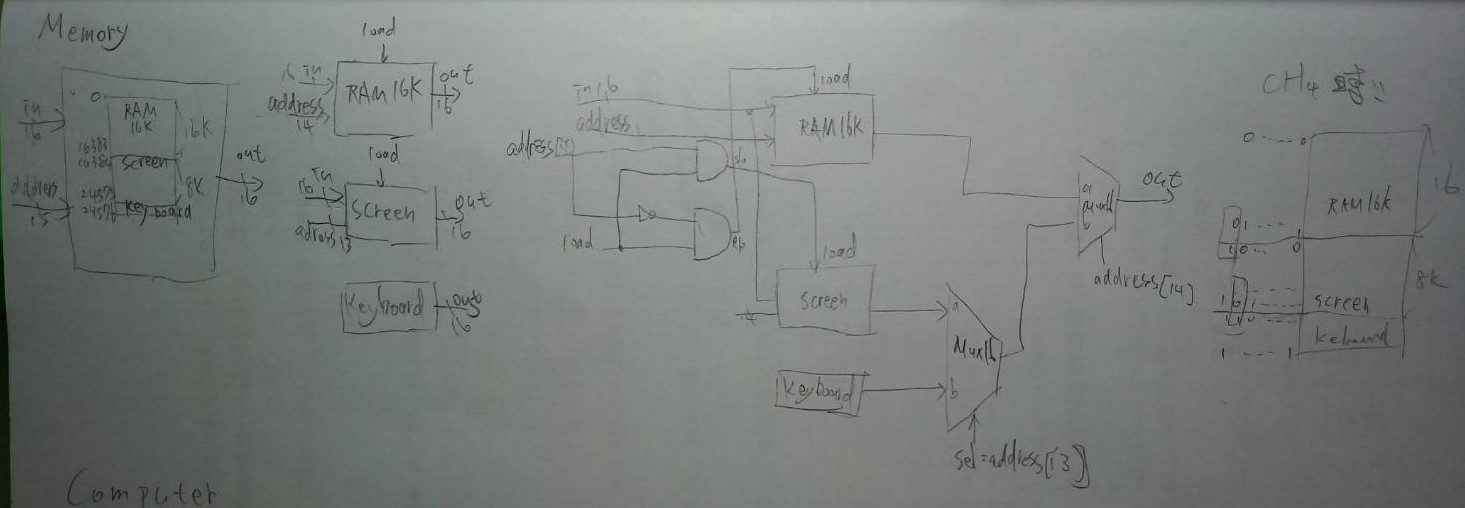 Memory
in
16
address
15
0
RAM
16K
16K
16383
16384
screen
8K
24575
24576
keyboard
out
16
load
in
address
14
RAM16K
out
16
load
in
16
adress 13
screen
out
16
Keyboard
out
16
in 16
address
load
RAM16K
load
load
screen
Keyboard
a
Mux16
b
sel=address[13]
a
Mux16
b
address[14]
out
CH4
0 ---- 0
RAM16K
16
01 ---- 1
10 ---- 0
8K
screen
kebaurd
1 ---- 1
Computer